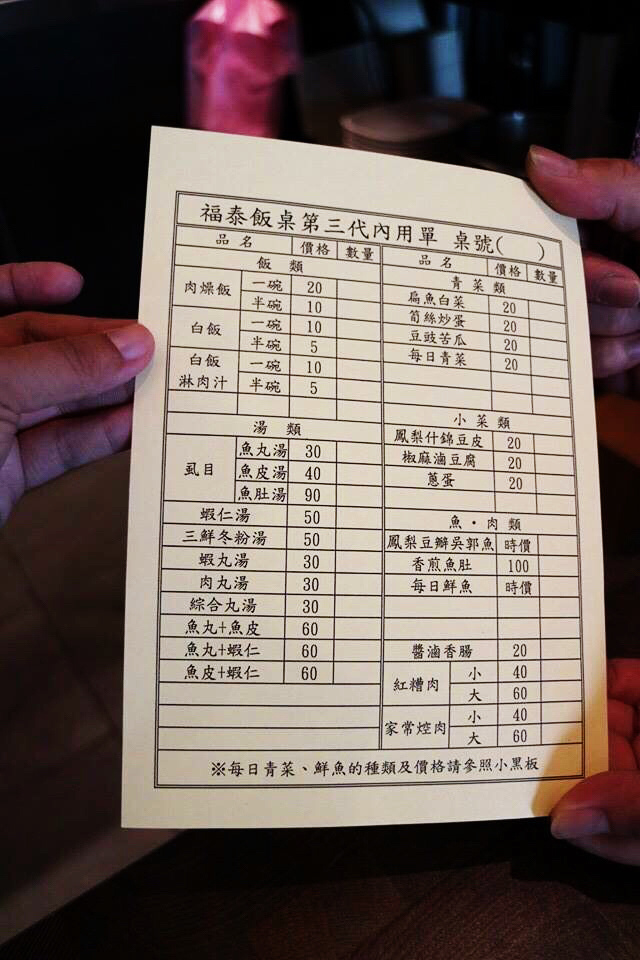 福泰飯桌第三代內用單 桌號( )
品名 價格 數量
飯類
肉燥飯 一碗 20
半碗 10
白飯 一碗 10
半碗 5
白飯淋肉汁 一碗 10
半碗 5
湯類
虱目 魚丸湯 30
魚皮湯 40
魚肚湯 90
蝦仁湯 50
三鮮冬粉湯 50
蝦丸湯 30
肉丸湯 30
綜合丸湯 30
魚丸+魚皮 60
魚丸+蝦仁 60
魚皮+蝦仁 60
品名 價格 數量
青菜類
扁魚白菜 20
筍絲炒蛋 20
豆豉苦瓜 20
每日青菜 20
小菜類
鳳梨什錦豆皮 20
椒麻滷豆腐 20
蔥蛋 20
魚・肉類
鳳梨豆瓣吳郭魚 時價
香煎魚肚 100
每日鮮魚 時價
醬滷香腸 20
紅糟肉 小 40
大 60
家常焢肉 小 40
大 60
※每日青菜、鮮魚的種類及價格請參照小黑板